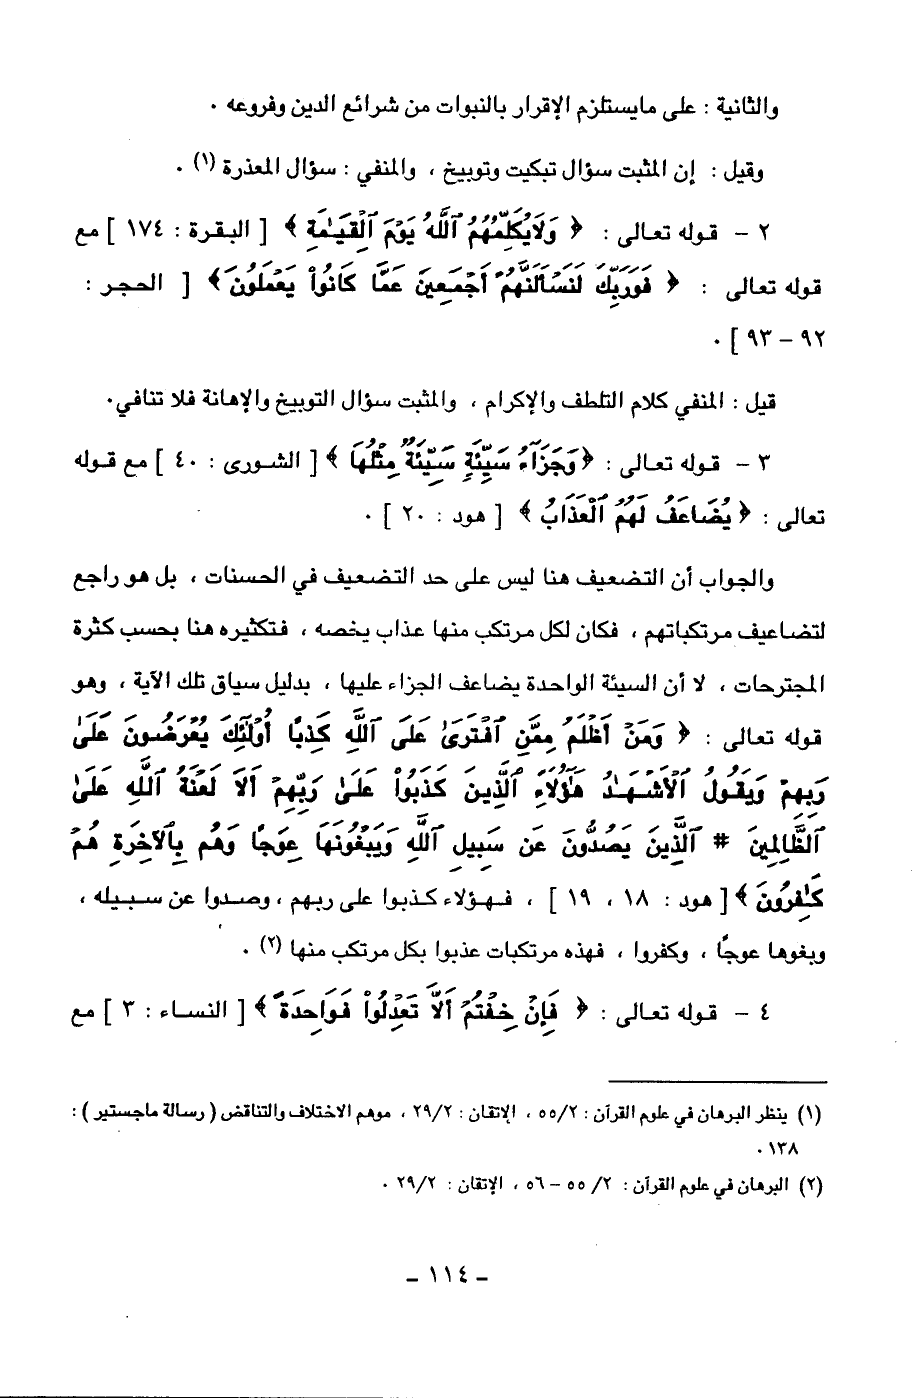 والثانية : على مايستلزم الإقرار بالنبوات من شرائع الدين وفروعه .
وقيل : إن المثبت سؤال تبكيت وتوبيخ ، والمنفي : سؤال المعذرة (١) .
٢ – قوله تعالى : ﴿ وَلَايُكَلِّمُهُمُ ٱللَّهُ يَوْمَ ٱلْقِيَـٰمَةِ ﴾ [ البقرة : ١٧٤ ] مع
قوله تعالى : ﴿ فَوَرَبِّكَ لَنَسْأَلَنَّهُمْ أَجْمَعِينَ عَمَّا كَانُواْ يَعْمَلُونَ ﴾ [ الحجر :
٩٢ – ٩٣ ] .
قيل : المنفي كلام التلطف والإكرام ، والمثبت سؤال التوبيخ والإهانة فلا تنافي.
٣ – قوله تعالى : ﴿وَجَزَآءُ سَيِّئَةٍ سَيِّئَةٌ مِثْلُهَا ﴾ [ الشورى : ٤٠ ] مع قوله
تعالى : ﴿ يُضَاعَفُ لَهُمُ ٱلْعَذَابُ ﴾ [ هود : ٢٠ ] .
والجواب أن التضعيف هنا ليس على حد التضعيف في الحسنات ، بل هو راجع
لتضاعيف مرتكباتهم ، فكان لكل مرتكب منها عذاب يخصه ، فتكثيره هنا بحسب كثرة
المجترحات ، لا أن السيئة الواحدة يضاعف الجزاء عليها ، بدليل سياق تلك الآية ، وهو
قوله تعالى : ﴿ وَمَنْ أَظْلَمُ مِمَّنِ ٱفْتَرَىٰ عَلَى ٱللَّهِ كَذِبًا أُوْلَٰٓئِكَ يُعْرَضُونَ عَلَىٰ
رَبِهِمْ وَيَقُولُ ٱلْأَشْهَـٰدُ هَٰٓؤُلَآءِ ٱلَّذِينَ كَذَبُواْ عَلَىٰ رَبِّهِمْ أَلَا لَعْنَةُ ٱللَّهِ عَلَىٰ
ٱلظَّالِمِينَ # ٱلَّذِينَ يَصُدُّونَ عَن سَبِيلِ ٱللَّهِ وَيَبْغُونَهَا عِوَجًا وَهُم بِٱلْآخِرَةِ هُمْ
كَـٰفِرُونَ ﴾ [ هود : ١٨ ، ١٩ ] ، فـهؤلاء كذبوا على ربهم ، وصدوا عن سبيله ،
وبغوها عوجًا ، وكفروا ، فهذه مرتكبات عذبوا بكل مرتكب منها (٢) .
٤ – قوله تعالى : ﴿ فَإِنْ خِفْتُمْ أَلَّا تَعْدِلُواْ فَوَاحِدَةً ﴾ [ النساء : ٣ ] مع
(١) ينظر البرهان في علوم القرآن : ٥٥/٢ ، الإتقان : ٢٩/٢ ، موهم الاختلاف والتناقض ( رسالة ماجستير ) :
١٣٨ .
(٢) البرهان في علوم القرآن : ٢/ ٥٥ – ٥٦ ، الإتقان : ٢٩/٢ .
– ١١٤ –